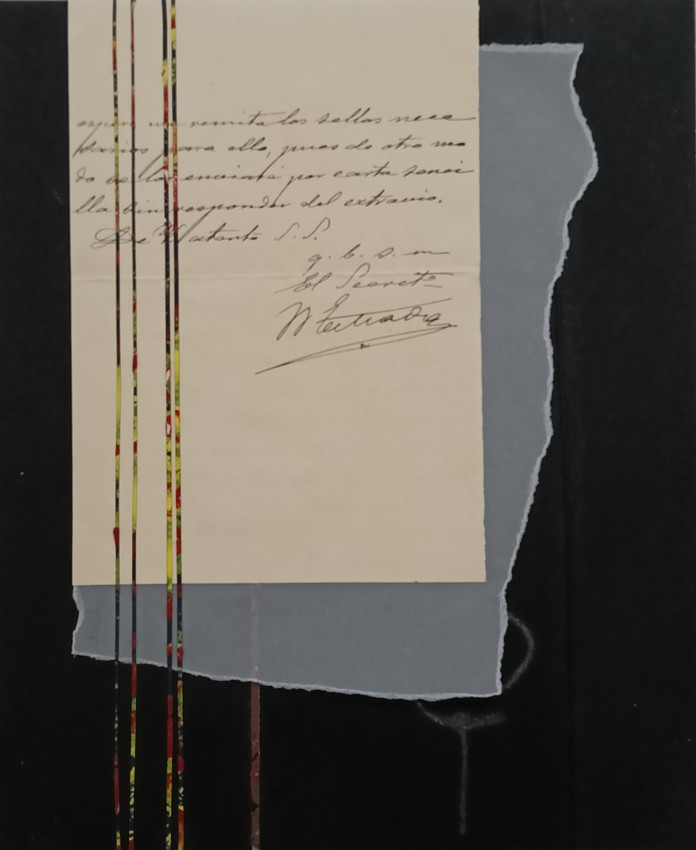 espero me remita los sellos nece
sarios para ello, pues de otro mo
do se los enviaré por carta senci
lla sin responder del extravio.
De V. atento S. S.
q. b. s. m
El Secretº
Estrada